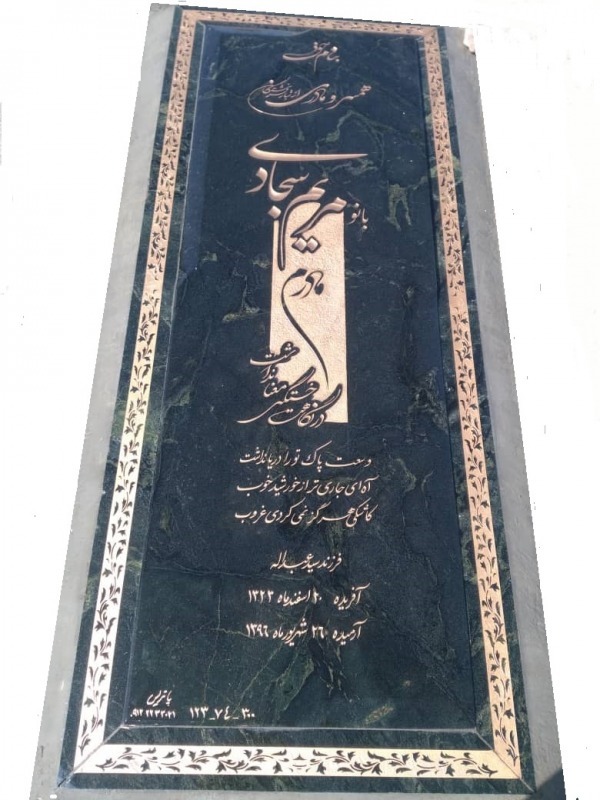 بنام حق
همسر و مادری از تبار
بانو مریم سجادی
مادرم
در نگاهت خستگی معنا نداشت
وسعت پاک تو را دریا نداشت
آه ای جاری تر از خورشید خوب
کاشکی هرگز نمی کردی غروب
فرزند سید عبداله
آفریده ۲۰ اسفند ماه ۱۳۲۳
آرمیده ۲۶ شهریور ماه ۱۳۹۶
۱۲۳_۷۴_۳۰۰